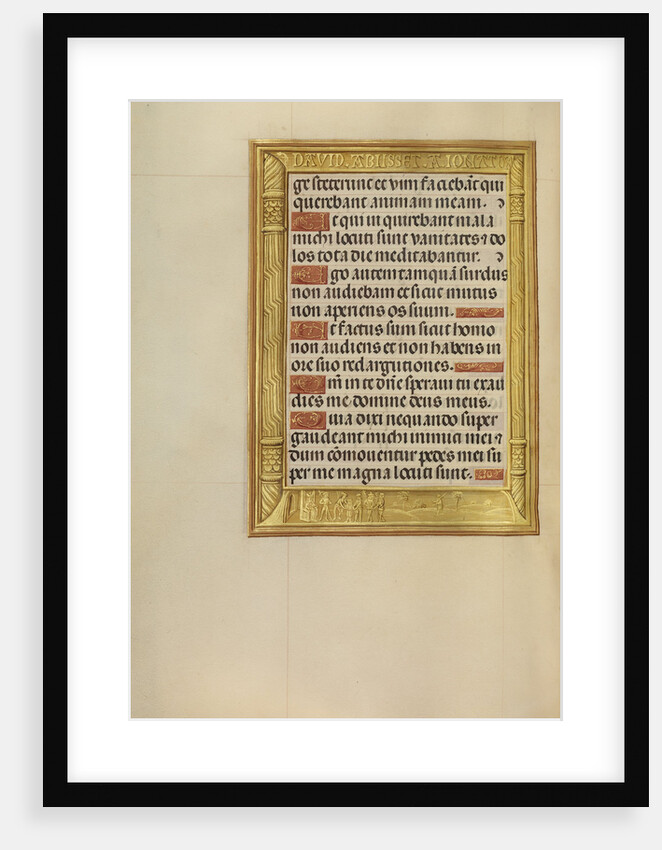 DAVID. ABIISSET. A. IONATA
ge steterunt et vim faciebāt qui
querebant animam meam.
Et qui inquirebant mala
michi locuti sunt vanitates ⁊ do
los tota die meditabantur.
Ego autem tamquā surdus
non audiebam et sicut mutus
non aperiens os suum.
Et factus sum sicut homo
non audiens et non habens in
ore suo redargutiones.
Qm̄ in te dn̄e speravi tu exau
dies me domine deus meus.
Quia dixi nequando super
gaudeant michi inimici mei ⁊
dum cōmoventur pedes mei su
per me magna locuti sunt.